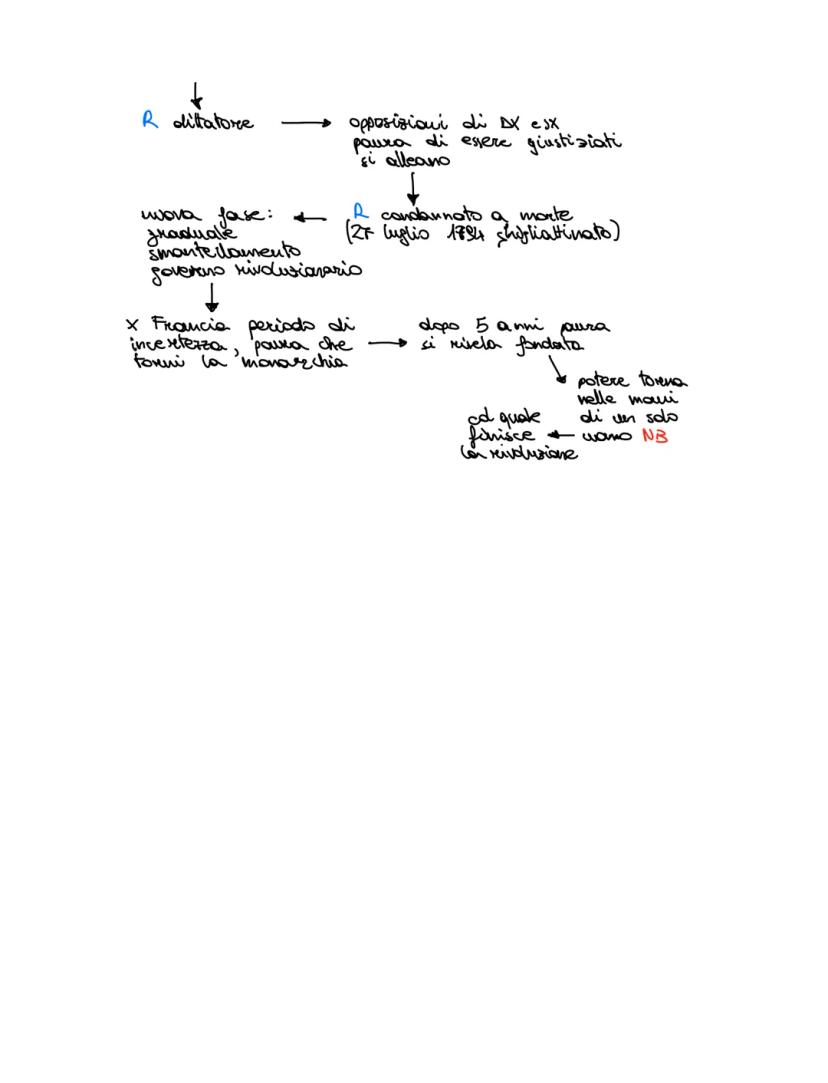 R dittatore
opposizioni di DX e SX
paura di essere giustiziati
si alleano
R condannato a morte
(27 luglio 1794 ghigliottinato)
nuova fase:
graduale
smantellamento
governo rivoluzionario
x Francia periodo di
incertezza, paura che
torni la monarchia
dopo 5 anni paura
si rivela fondata
potere torna
nelle mani
di un solo
uomo NB
col quale
finisce
la rivoluzione